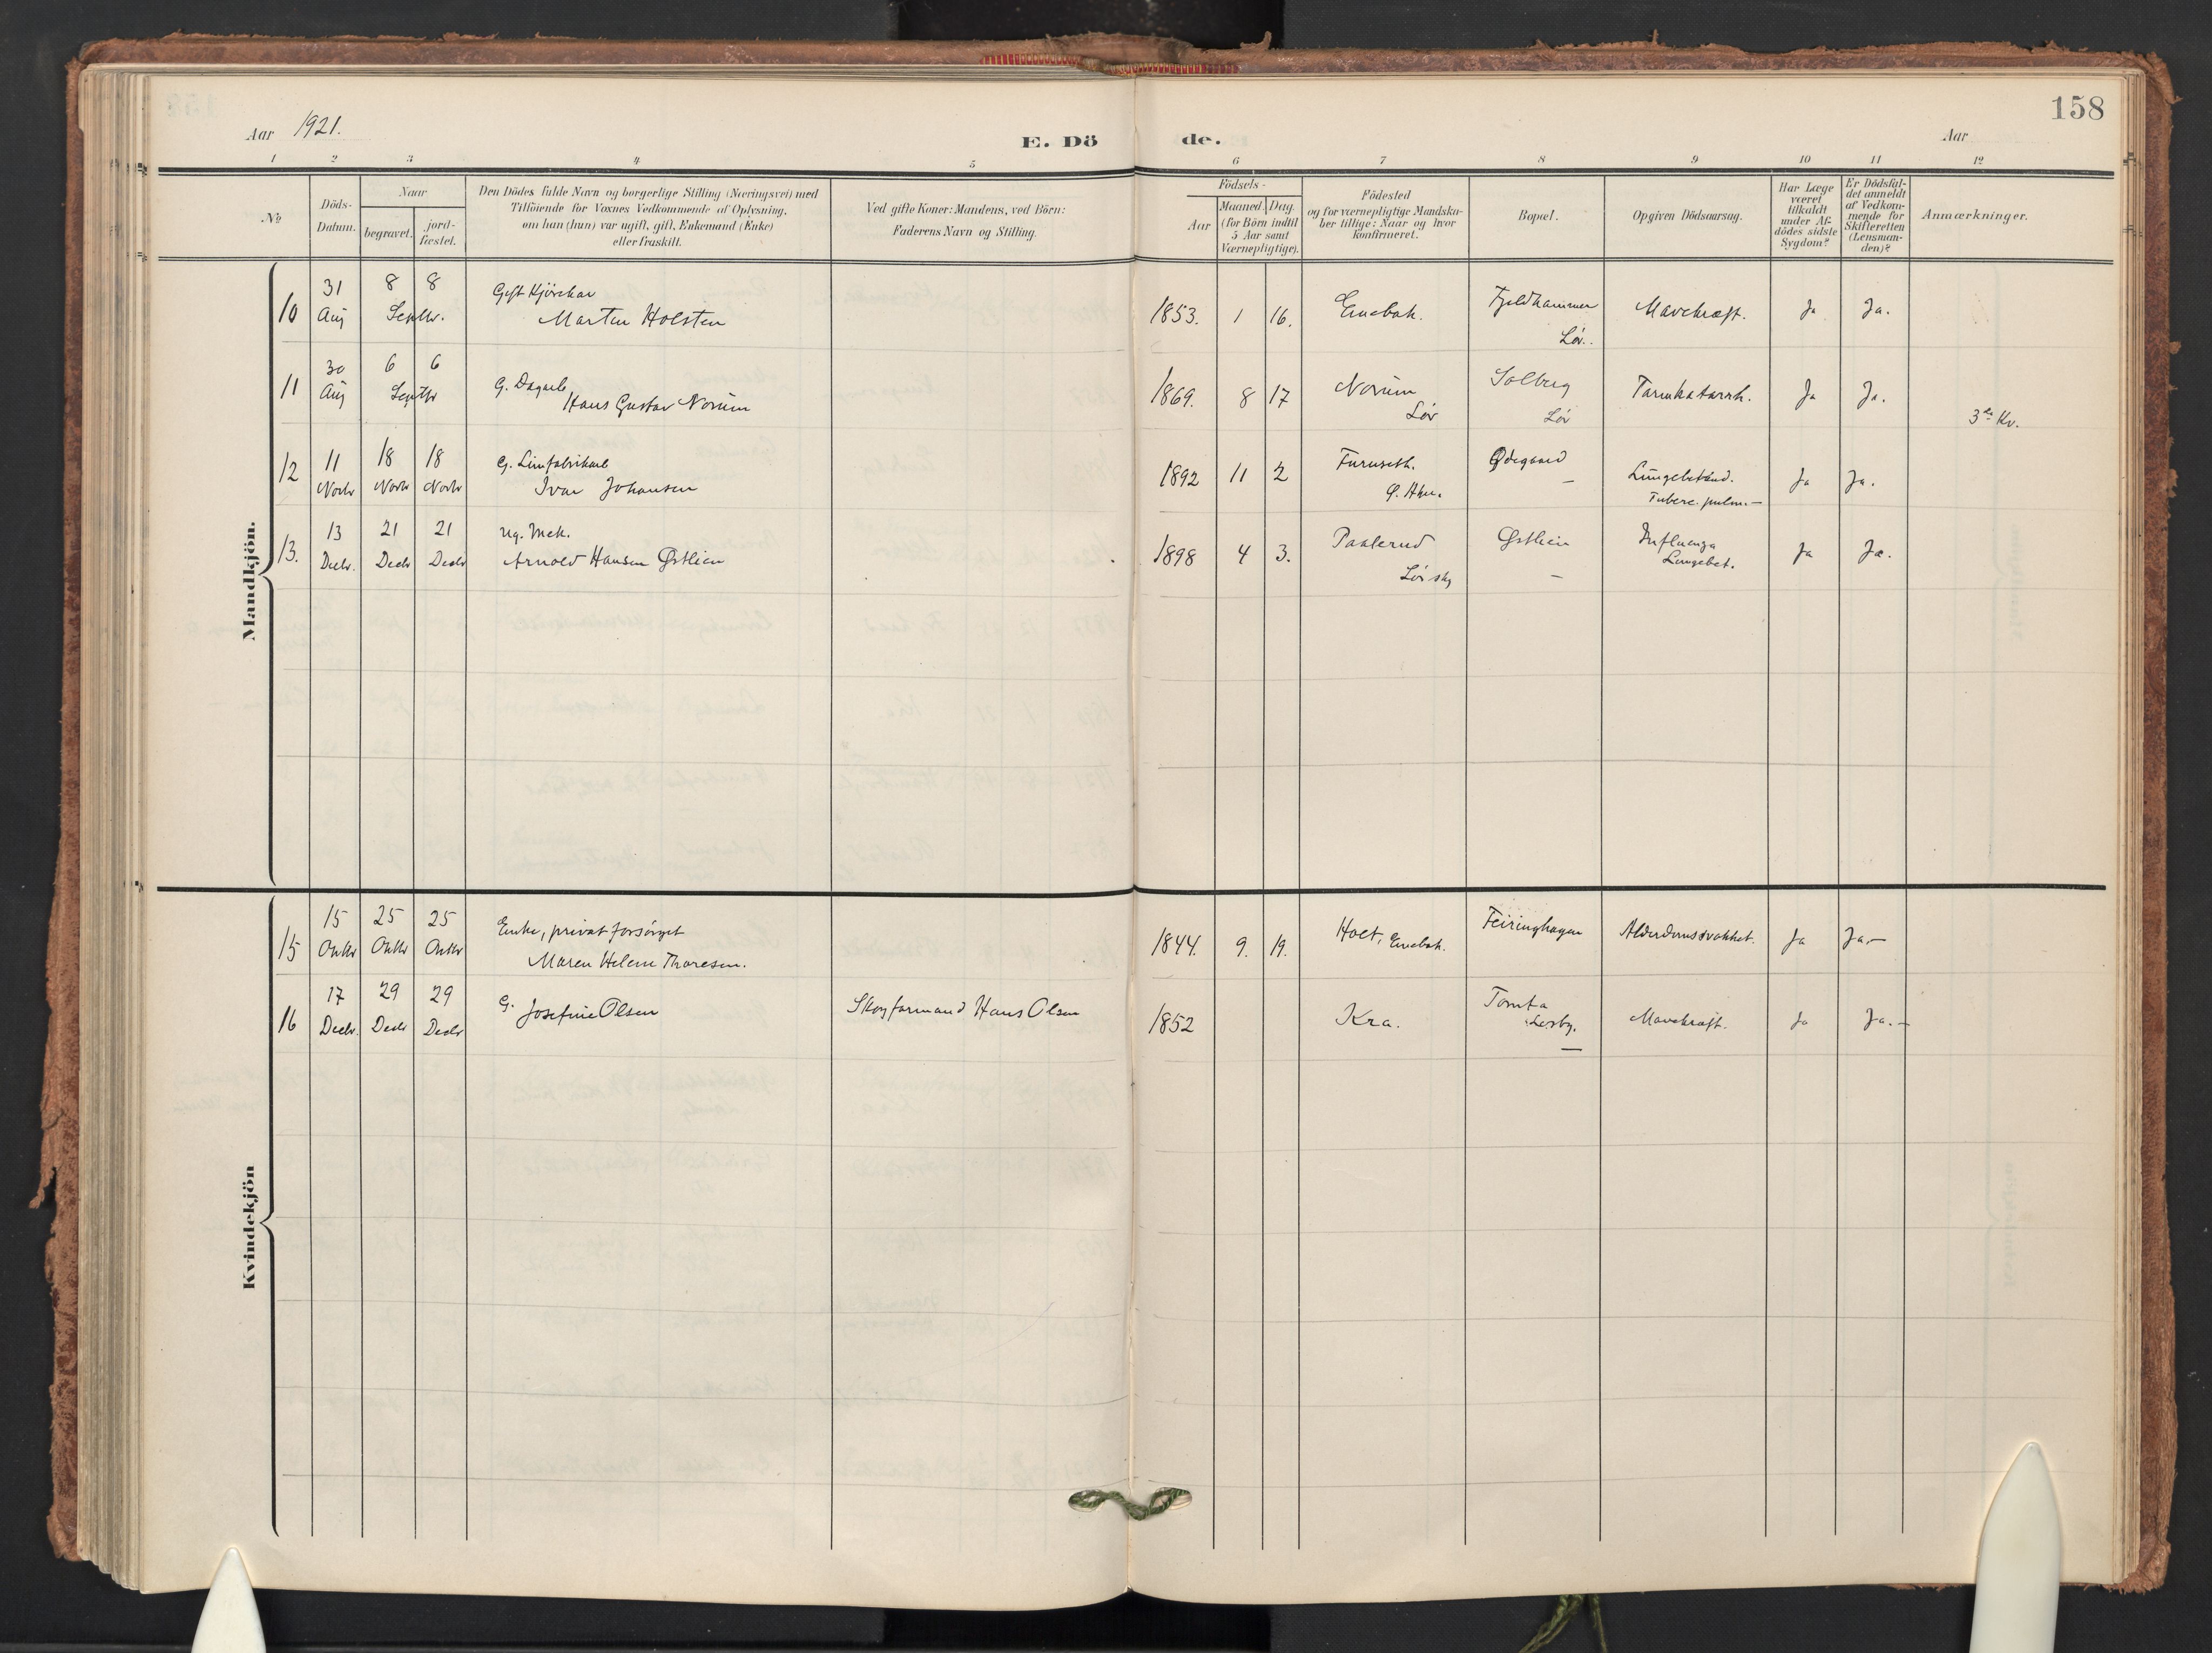 158
Aar 1921.
E. Dö de.
Aar
1 2 3 4 5 6 7 8 9 10 11 12
№
Döds-
Datum.
Naar
begravet.
jord-
fæstet.
Den Dödes fulde Navn og borgerlige Stilling (Næringsvei) med
Tilföiende for Voxnes Vedkommende af Oplysning,
om han (hun) var ugift, gift, Enkemand (Enke)
eller fraskilt.
Ved gifte Koner: Mandens, ved Börn:
Faderens Navn og Stilling.
Födsels-
Aar
Maaned. Dag.
(for Börn indtil
5 Aar samt
Værnepligtige).
Födested
og for værnepligtige Mandska-
ber tillige: Naar og hvor
konfirmeret.
Bopæl.
Opgiven Dödsaarsag.
Har Læge
været
tilkaldt
under Af-
dödes sidste
Sygdom?
Er Dödsfal-
det anmeldt
af Vedkom-
mende for
Skifteretten
(Lensman-
den)?
Anmærkninger.
Mandkjön.
10 31 Aug 8 8 Septbr.
Gift
Marten Holsten
1853. 1 16. Enebak. Fjeldhammer
Lør. Mavekræft. Ja Ja.
11 30 Aug 6 6 Septbr
G. Dagarb.
Hans Gustav Norum
1869. 8 17 Norum
Lør Solberg
Lør Tarmkatarrh. Ja Ja.
3die Kv.
12 11 Novbr 18 Novbr 18 Novbr
G. Limfabrikarb
Ivar Johansen
1892 11 2 Furuseth.
Ø. Aker. Ødegaard
— Lungebetænd.
Tuberc. pulm. — Ja Ja.
13. 13 Decbr. 21 Decbr 21 Decbr
Ug. Mek.
Arnold Hansen Østlien
1898 4 3. Paalerud
Lørskg Østlien
— Influenza
Lungebet. Ja Ja.
Kvindekjön
15 15 Oktbr 25 Oktbr 25 Oktbr
Enke, privat forsørget
Maren Helene Thoresen.
1844. 9. 19. Hoel, Enebak. Feiringhagen Alderdomssvakhet. Ja Ja.—
16 17 Decbr. 29 Decbr 29 Decbr
G. Josefine Olsen
Skogformand Hans Olsen
1852 Kra. Tomta
Losby.
— Mavekræft. Ja Ja.—